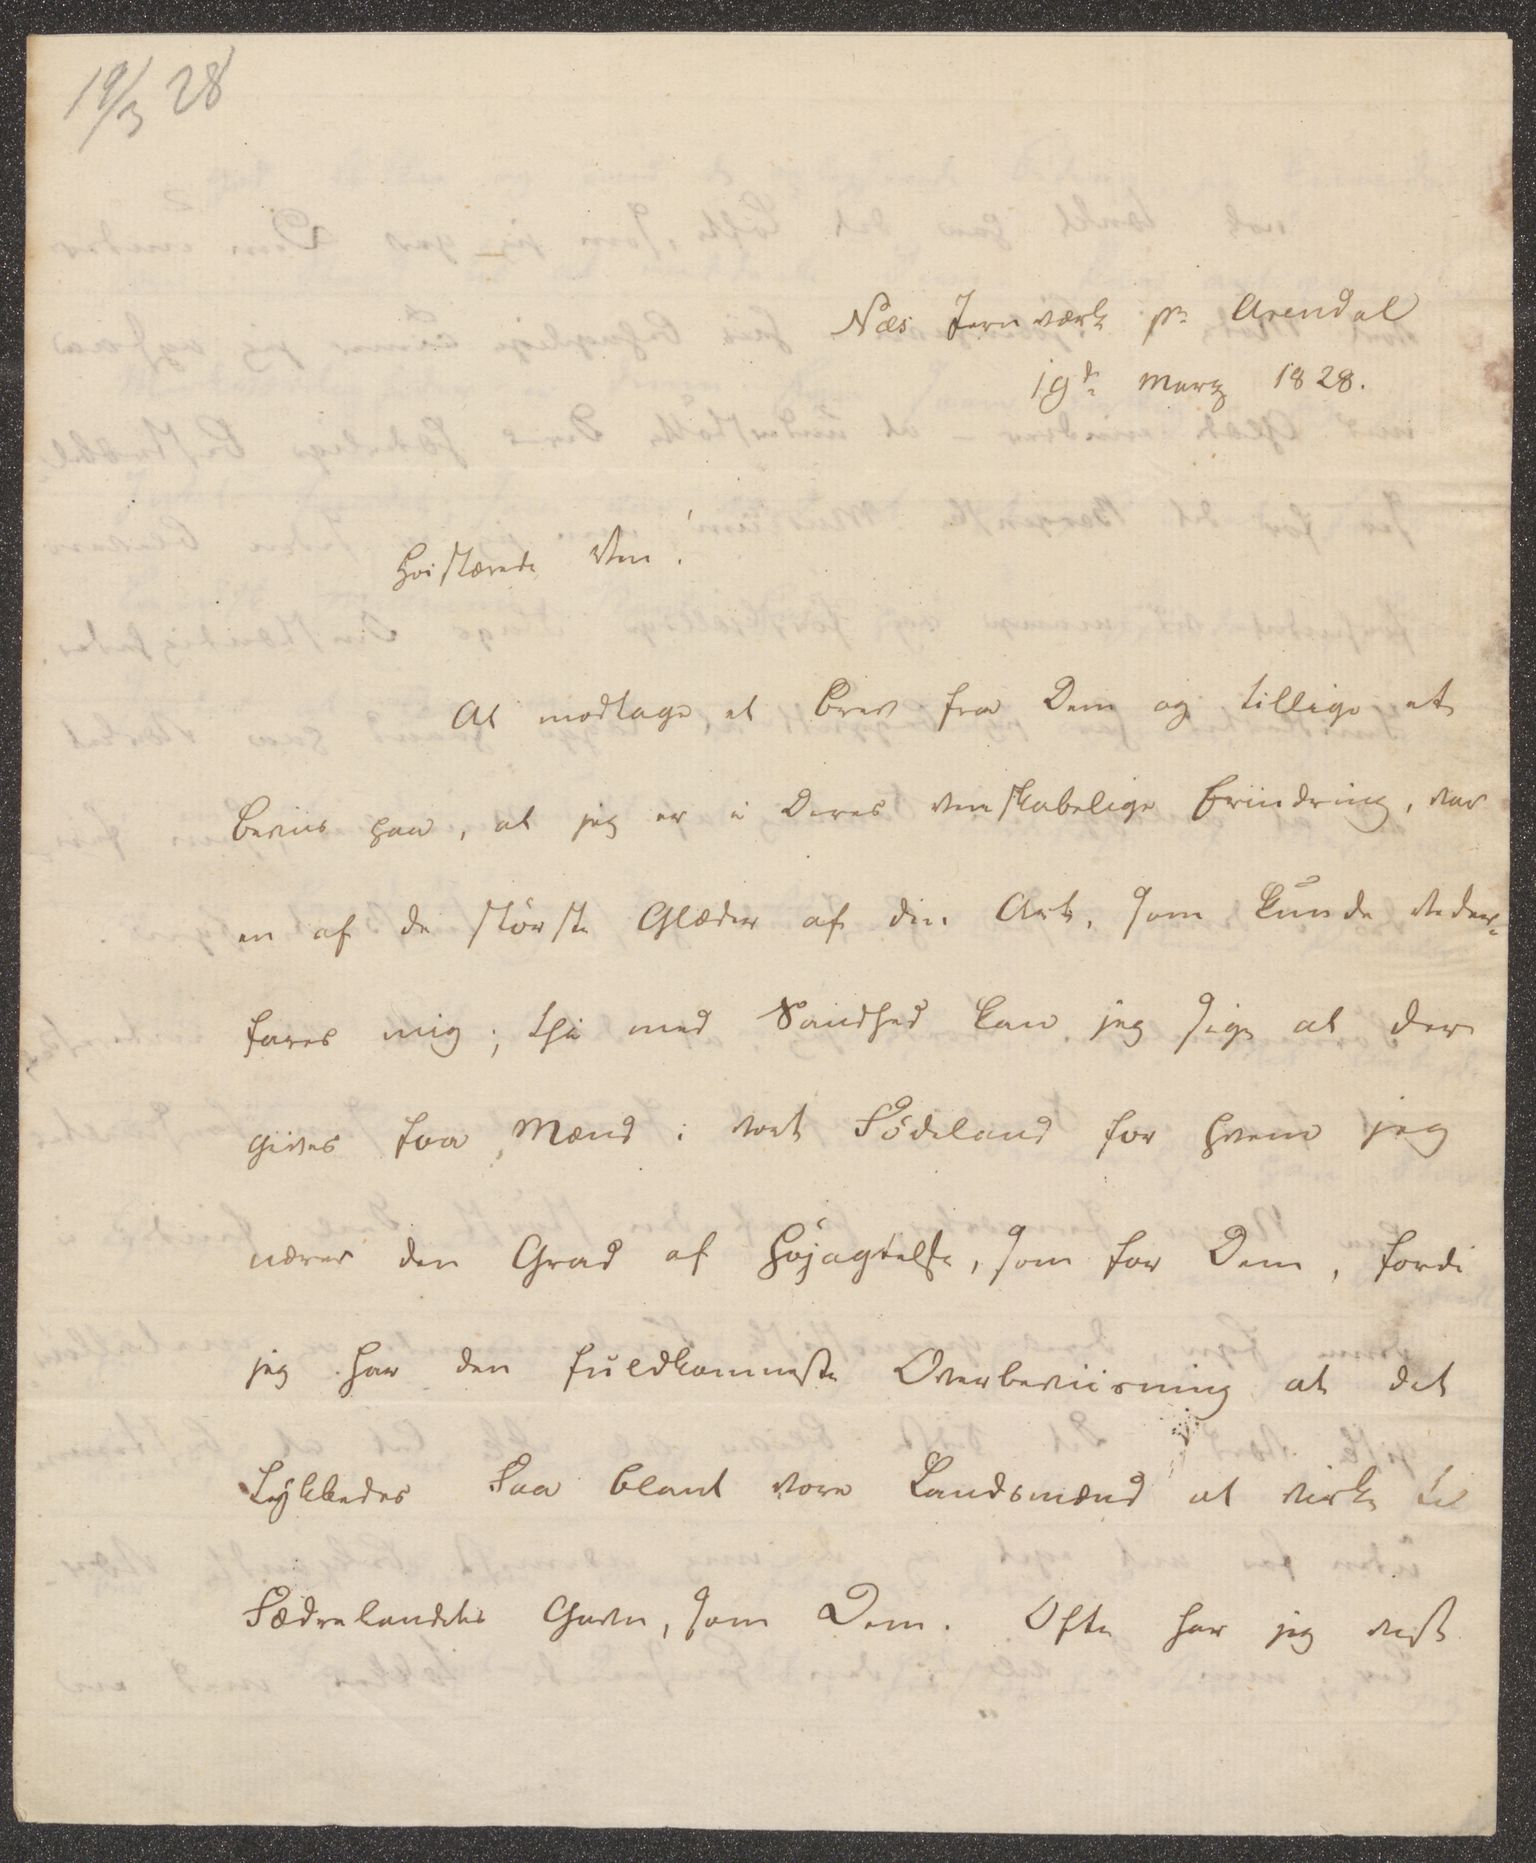 19/3 28
Næs Jernværk pr Arendal
19de Martz 1828.
Høistærede Ven!
At modtage et Brev fra Dem og tillige et
Beviis paa, at jeg er i Deres venskabelige Erindring, var
en af de største Glæder af den Art, som kunde veder-
fares mig; thi med Sandhed kan jeg sige at der
gives faa Mænd i vort Födeland for hvem jeg
nærer den Grad af Højagtelse, som for Dem, fordi
jeg har den fuldkomneste Overbeviisning at det
Lykkedes Faa blant vore Landsmænd at virke til
Fædrelandets Gavn, som Dem. Ofte har jeg vist